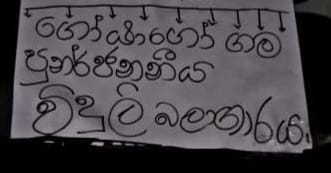 ගෝයාගෝ ගල
පුනර්ජනනීය
විදුලි බලාගාරය.